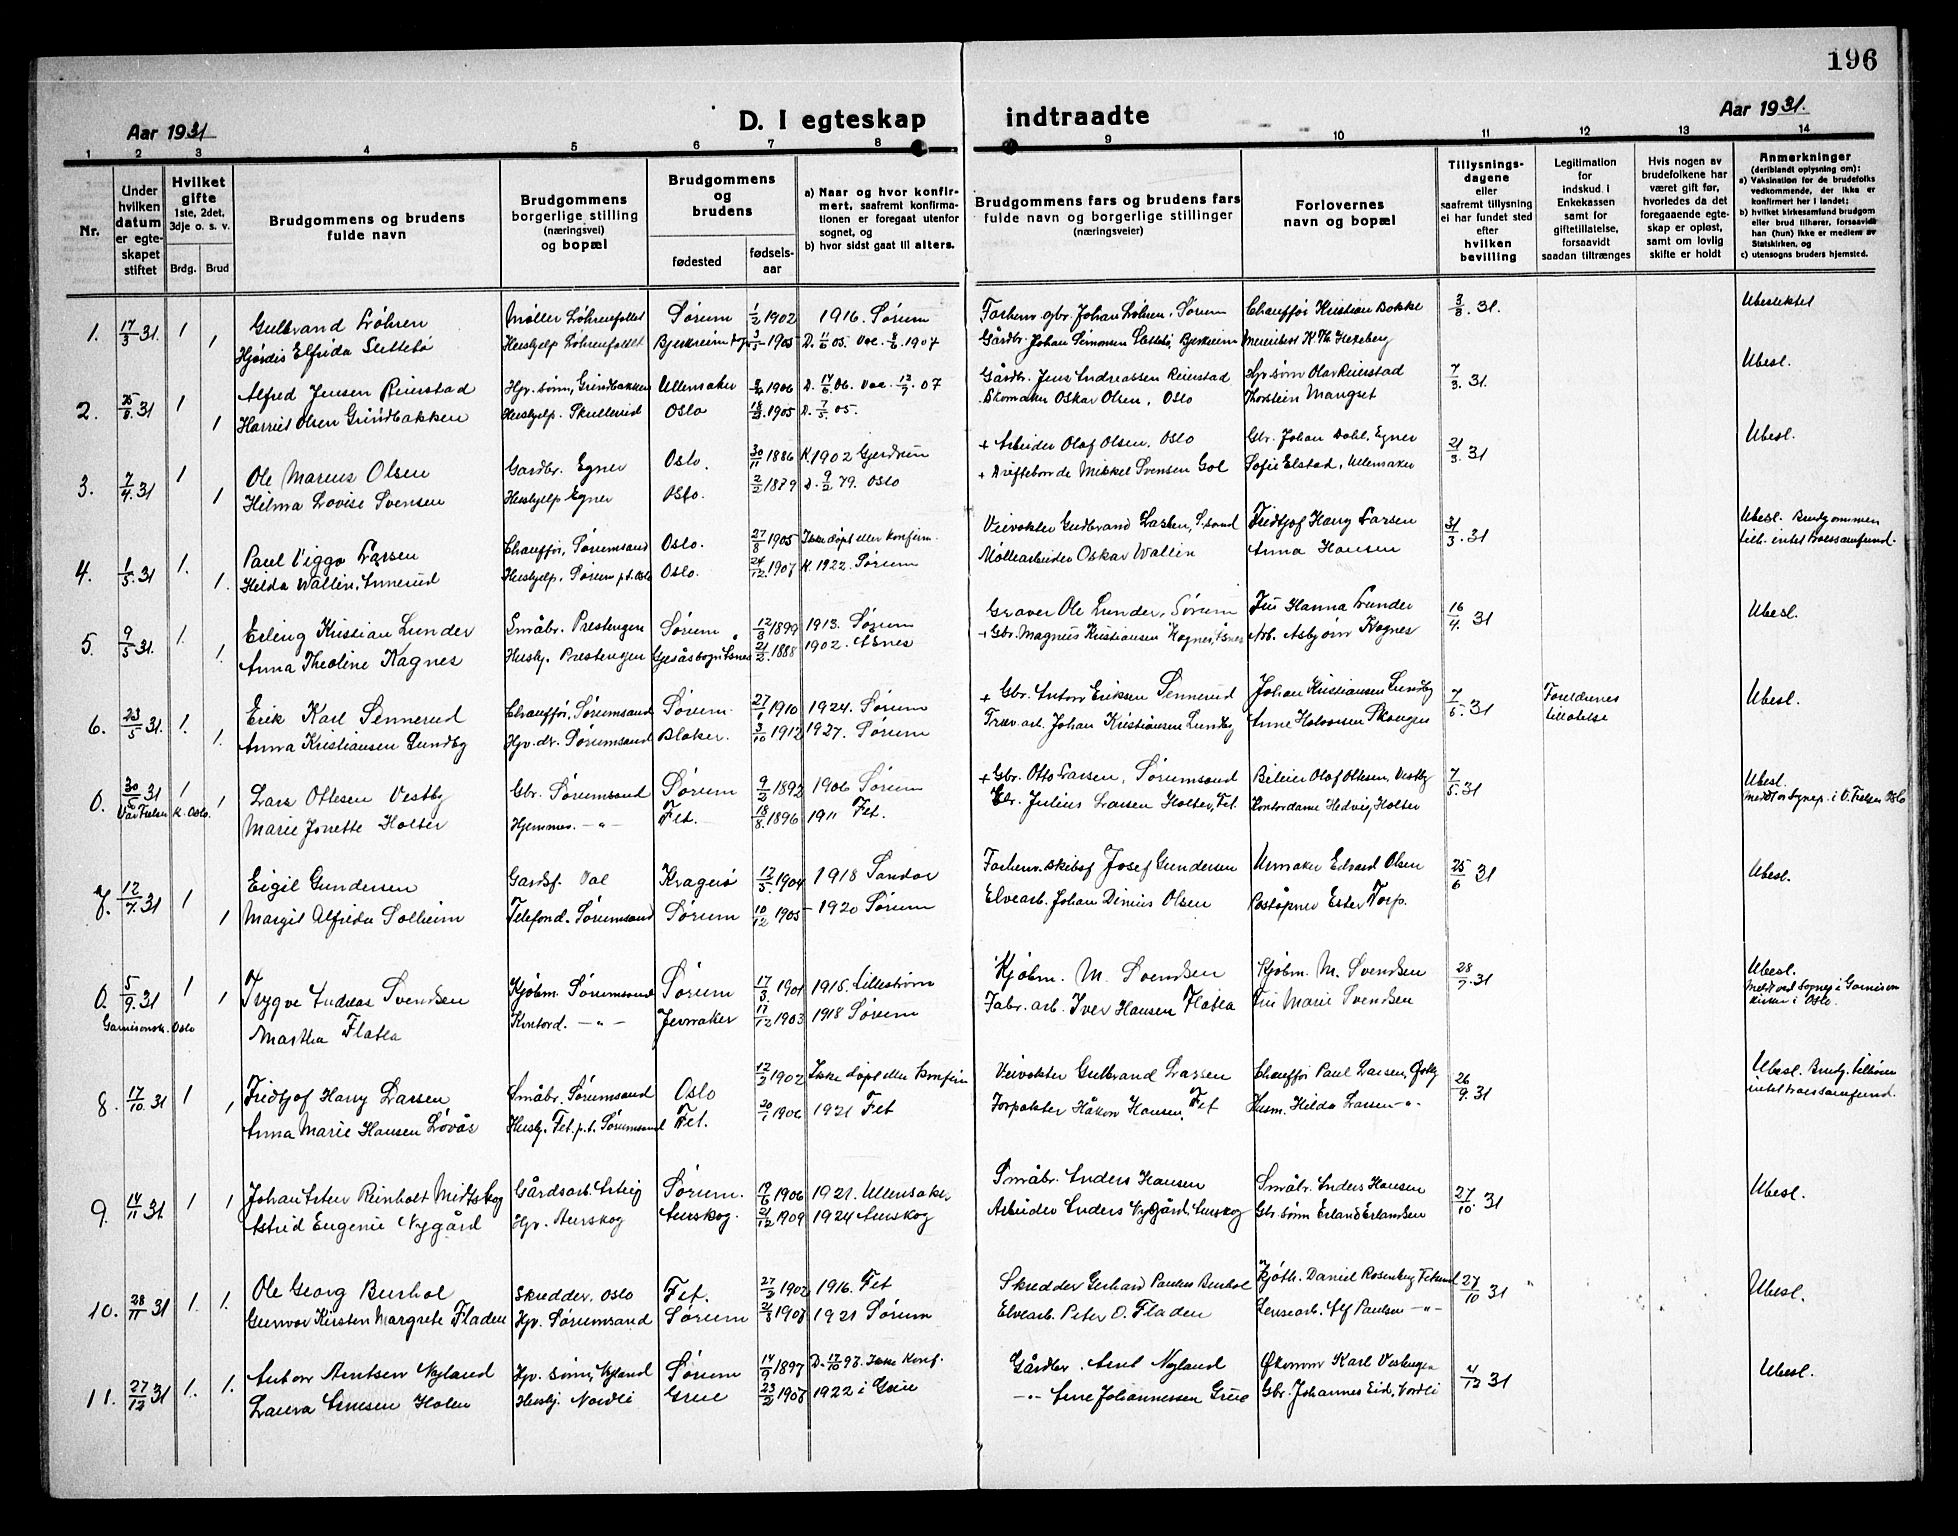 196
Aar 1931
D. I egteskap indtraadte
Aar 1931.
1 2 3 4 5 6 7 8 9 10 11 12 13 14
Nr.
Under hvilken datum er egteskapet stiftet
Hvilket gifte 1ste, 2det, 3dje o. s. v.
Brdg. Brud
Brudgommens og brudens fulde navn
Brudgommens og brudens borgerlige stilling (næringsvei) og bopæl
Brudgommens og brudens
fødested
fødselsaar
a) Naar og hvor konfirmert, saafremt konfirmationen er foregaat utenfor sognet, og
b) hvor sidst gaat til alters.
Brudgommens fars og brudens fars fulde navn og borgerlige stillinger (næringsveier)
Forlovernes navn og bopæl
Tillysningsdagene eller saafremt tillysning ei har fundet sted efter hvilken bevilling
Legitimation for indskud i Enkekassen samt for giftetillatelse, forsaavidt saadan tiltrænges
Hvis nogen av brudefolkene har været gift før, hvorledes da det foregaaende egteskap er opløst, samt om lovlig skifte er holdt
Anmerkninger (deriblandt oplysning om):
a) Vaksination for de brudefolks vedkommende, der ikke er konfirmert her i landet;
b) hvilket kirkesamfund brudgom eller brud tilhører, forsaavidt han (hun) ikke er medlem av Statskirken, og
c) utensogns bruders hjemsted.
1. 17/3 31. 1 Gulbrand Løhren Møller Løhrenfallet Sørum 1/2 1902 1916. Sørum Forhenv. gbr. Johan Løhren, Sørum Chauffør Kristian Bokke 3/3. 31. Ubeslektet
1 Hjørdis Elfrida Slettebø Hushjelp Løhrenfallet Bjerkreim 1905 1907 Gårdbr. Johan Simonsen Slettebø, Bjerkreim
2. 25/3. 31 1 Alfred Jensen Reierstad Hjv. sønn, Grindbakken Ullensaker 1906 D. 14/6 06. Vac. 12/7. 07 Gårdbr. Jens Andreassen Reierstad Hjv. sønn Olav Reierstad 7/3. 31. Ubesl.
1 Harriet Olsen Grindbakken Hushjelp. Skullerud Oslo 1905 D. 7/5. 05. Skomaker Oskar Olsen, Oslo Thorstein Mangset
3. 7/4. 31 1 Ole Marius Olsen Gardbr. Egner Oslo. 30/11 1886 K. 1902 Gjerdrum + Arbeider Olaf Olsen, Oslo Gbr. Johan Dahl, Egner 21/3. 31 Ubesl.
1 Hilma Lovise Svensen Hushjelp Egner Oslo. D. 9/2. 79. Oslo Mikkel Svensen Gol Sofie Elstad, Ullensaker
4. 1/5. 31 1. Paul Viggo Larsen Chauffør, Sørumsand Oslo. 27/8 1905 Ikke døpt eller konfirm. Veivokter Gudbrand Larsen, S.sand Fridtjof Harry Larsen 31/3. 31 Ubesl. Brudgommen tilh. intet trossamfund.
1. Helda Wallin, Annerud Hushjelp, Sørum p.t. Oslo Oslo. 24/12. 1907 K. 1922. Sørum Møllearbeider Oskar Wallin Anna Hansen
5. 9/5 31. 1. Erling Kristian Lunder Småbr. Prestengen Sørum 12/3 1899 1913. Sørum Graver Ole Lunder, Sørum Fru Hanna Lunder 16/4. 31 Ubesl.
1. Anna Theoline Kagnes Hushj. Prestengen Gjesåssogn Åsnes 21/2. 1888 1902. Åsnes + Gbr. Magnus Kristiansen Kognes, Åsnes Arb. Asbjørn Kognes
6. 23/5 31. 1. Erik Karl Sennerud Chauffør, Sørumsand Sørum. 27/1 1910 1924. Sørum + Gbr. Anton Eriksen Sennerud Johan Kristiansen Lundby 7/5. 31 Foreldrenes tillatelse Ubesl.
1. Anna Kristiansen Lundby Hjv. dr. Sørumsand Blaker. 3/10 1912 1927. Sørum Trævarb. Johan Kristiansen Lundby Anne Halvorsen Skougen
0. 30/5 31 1 1 Lars Ottesen Vestby Gbr. Sørumsand Sørum 9/2 1892 1906 Sørum + Gbr. Otto Larsen, Sørumsand Bileier Olaf Ottesen, Vestby 7/5. 31 Ubesl.
Vår Frelsers K. Oslo. Marie Jonette Holter Hjemmev. -"- Fet. 18/8. 1896 1911 Fet. Gbr. Julius Larsen Holter, Fet. Kontordame Hedvig Holter
7. 12/7. 31 1 Eigil Gundersen Gardsf. Val Kragerø 12/5. 1904 1918 Sandar Forhenv. skibsf. Josef Gundersen Urmaker Edvard Olsen 25/6 31 Ubesl.
1 Margit Alfrida Solheim Telefond. Sørumsand Sørum 10/12 1905 1920 Sørum Elvearb. Johan Dinius Olsen Poståpner Ester Torp.
0. 5/9. 31 1 1 Trygve Andreas Svendsen Kjøbm. Sørumsand Sørum 17/3. 1901 1915. Lillestrøm Kjøbm. M. Svendsen Kjøbm. M. Svendsen 28/7. 31 Ubesl. Meldt ved Sognep. i Garnisonkirken i Oslo.
Garnisonsk. Oslo Martha Flatla Kontord. -"- Jevnaker 17/12 1903 1918 Sørum Fabr. arb. Iver Hansen Flatla Fru Marie Svendsen
8. 17/10. 31 1 1 Fridtjof Harry Larsen Småbr. Sørumsand Oslo 12/2 1902 Ikke døpt eller konfirm Veivokter Gulbrand Larsen Chauffør Paul Larsen, 26/9. 31 Ubesl. Brudg. tilhører intet trossamfund.
Anna Marie Hansen Løvås Hushj. Fet. p.t. Sørumsand Fet. 20/1 1906 1921 Fet Forpakter Håkon Hansen, Fet Husm. Hilda Larsen -"-
9. 14/11 31. 1 1 Johan Arthur Reinholt Midtskog Gårdsarb. Asteig Sørum. 19/6 1906 1921. Ullensaker Småbr. Anders Hansen Småbr. Anders Hansen 27/10. 31 Ubesl.
Astrid Eugenie Nygård Hjv. Aurskog Aurskog. 21/12 1909 1924 Aurskog Arbeider Anders Nygård, Aurskog Gbr. sønn Erland Erlandsen
10. 28/11 31 1. 1. Ole Georg Burhol Skredder, Oslo Fet. 27/3 1902 1916. Fet Skredder Gerhard Paulus Burhol Kjøtth. Daniel Rosenberg Fetsund 27/10 31 Ubesl.
Gunvor Kirsten Margrete Fladen Hjv. Sørumsand Sørum 1921 Sørum Elvearb. Peter O. Fladen Lensearb. Alf Paulsen -"-
11. 27/12 31 1. 1. Anton Arntsen Nyland Hjv. sønn, Nyland Sørum 14/9 1897 D. 17/10 97. Ikke konf. Gårdbr. Arnt Nyland Økonom Karl Vestengen 4/12 31 Ubesl.
Laura Arnesen Holen Hushj. Nordli Grue 23/2 1907 1922 i Grue -"- Arne Johannessen Grue Gbr. Johannes Eid, Nordli